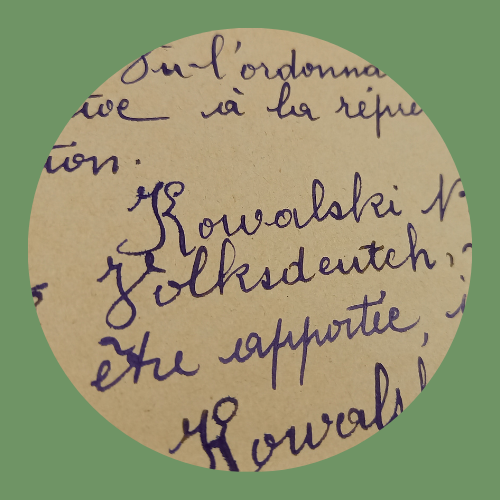 Vu l'ordonna
tive à la répre
tion.
Kowalski N
Volksdeutch,
être apportée,
Kowalsk